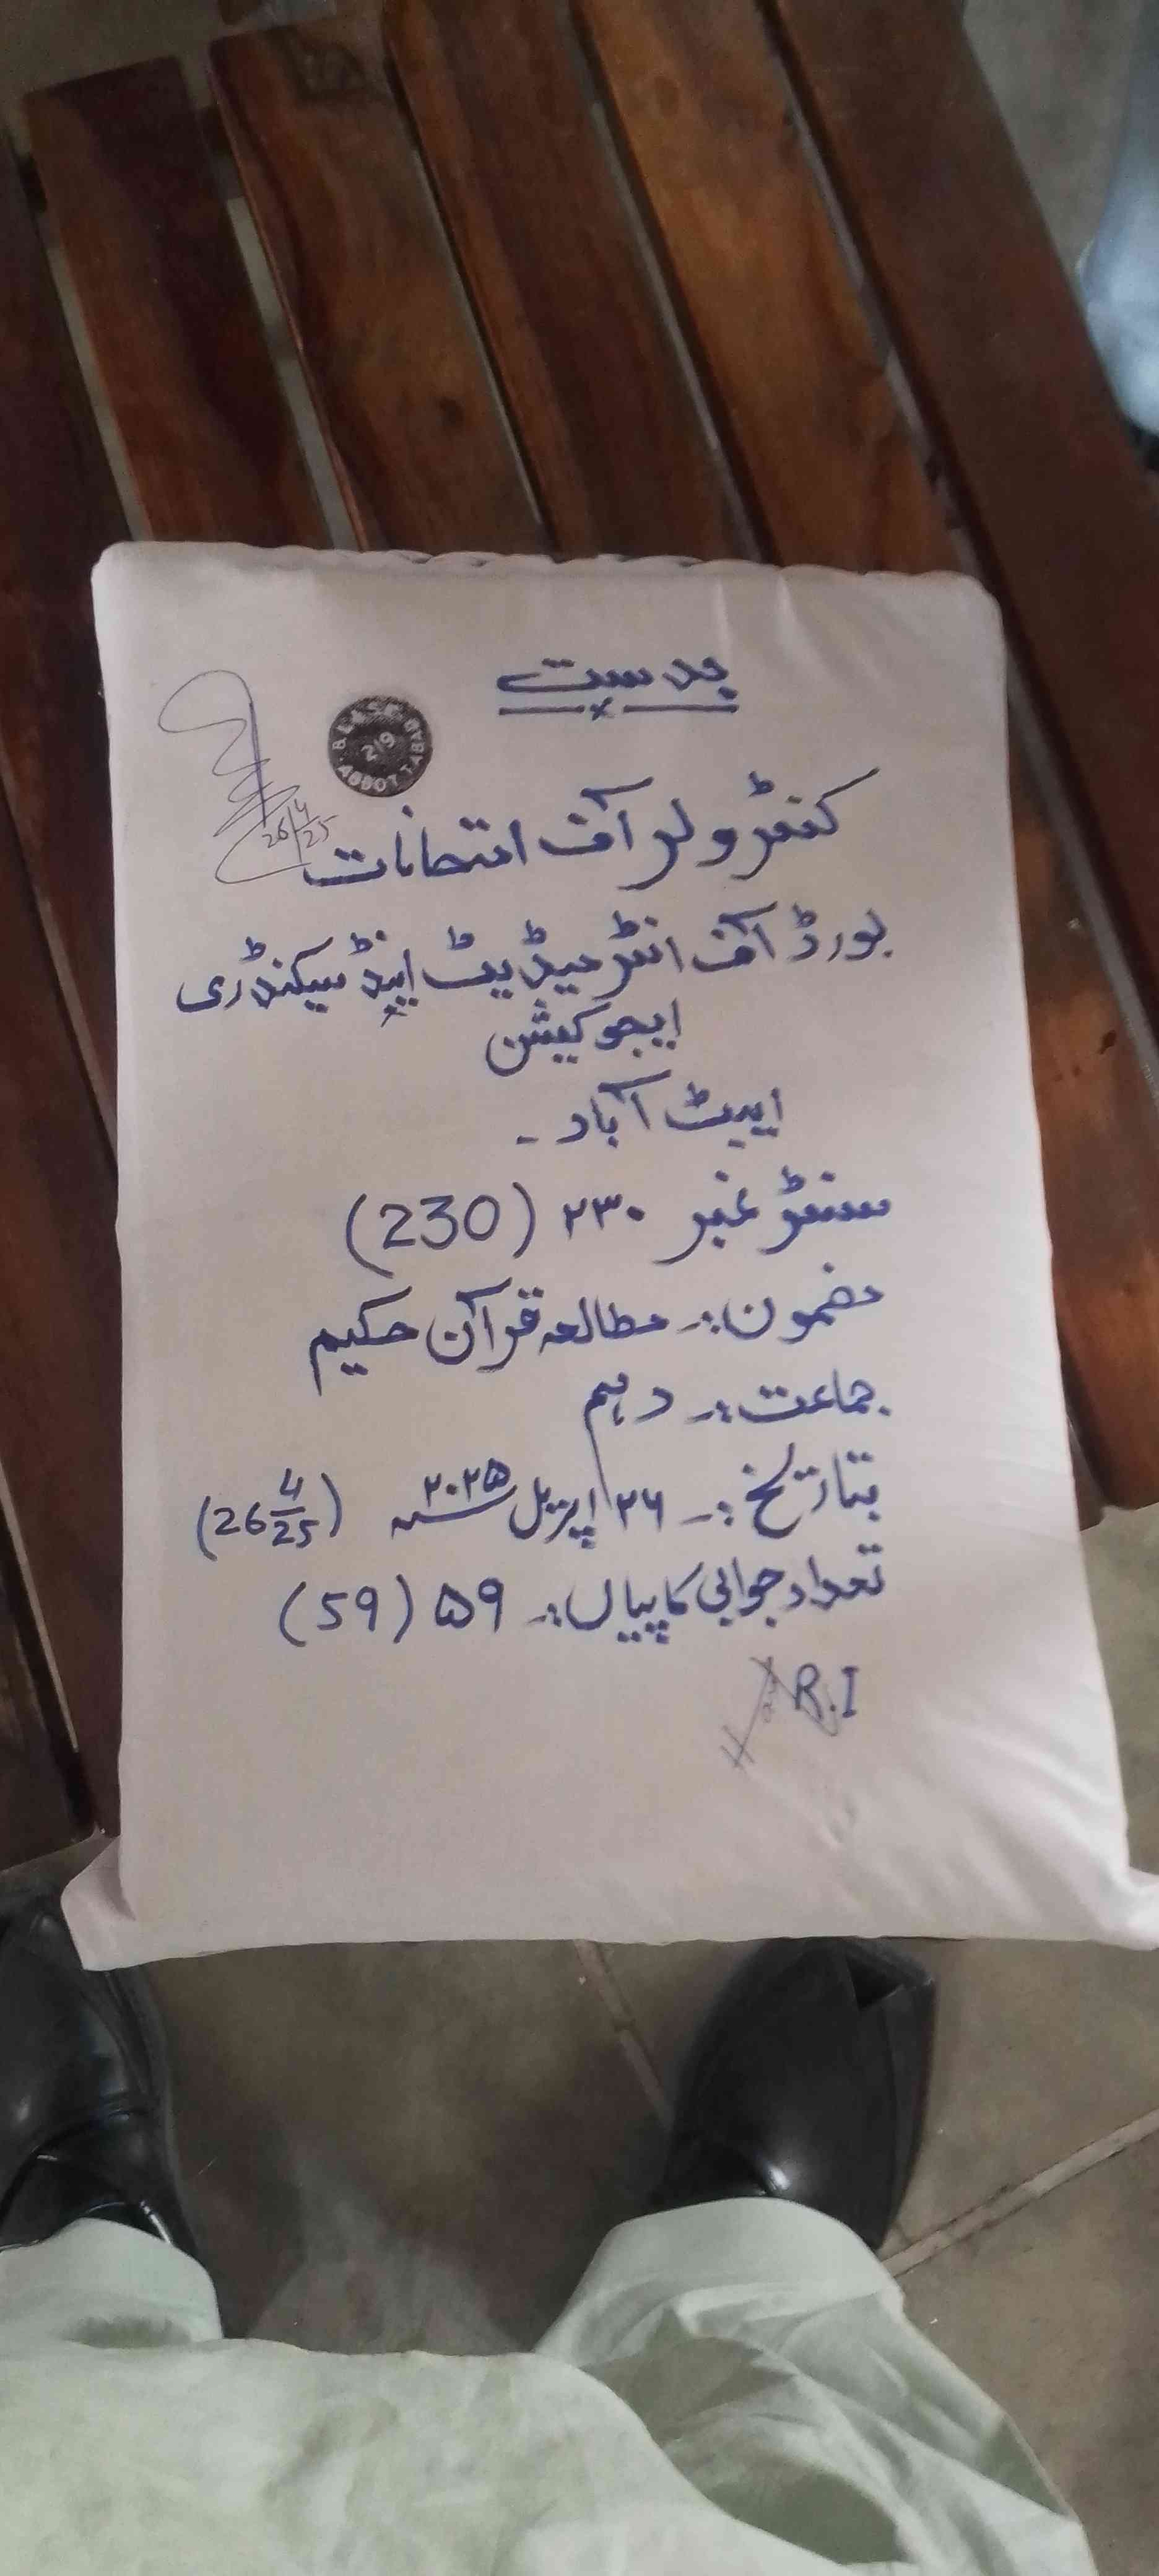 بدست
B.I.&S.E. ABBOTTABAD
219
26/4/25
کنٹرولر آف امتحانات
بورڈ آف انٹرمیڈیٹ اینڈ سیکنڈری
ایجوکیشن
ایبٹ آباد۔
سنٹر نمبر ۲۳۰ (230)
مضمون:۔ مطالعہ قرآن حکیم
جماعت:۔ دہم
بتاریخ:۔ ۲۶ اپریل ۲۰۲۵ (26/4/25)
تعداد جوابی کاپیاں:۔ ۵۹ (59)
R.I